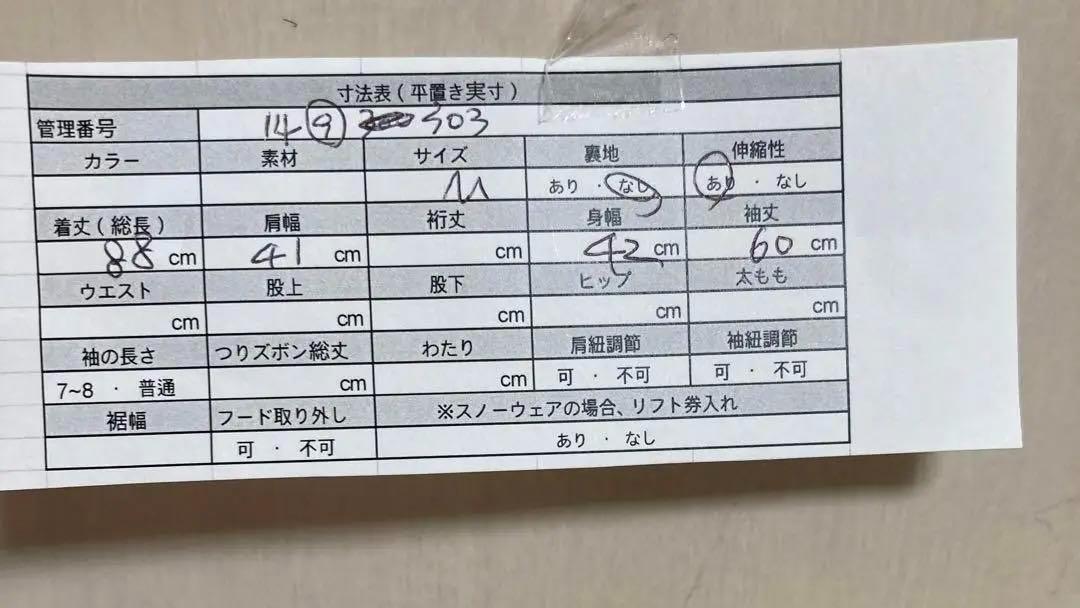 寸法表(平置き実寸)
管理番号 14-9 303
カラー 素材 サイズ 裏地 伸縮性
M あり · なし あり · なし
着丈(総長) 肩幅 裄丈 身幅 袖丈
88 cm 41 cm cm 42 cm 60 cm
ウエスト 股上 股下 ヒップ 太もも
cm cm cm cm cm
袖の長さ つりズボン総丈 わたり 肩紐調節 袖紐調節
7~8 · 普通 cm cm 可 · 不可 可 · 不可
裾幅 フード取り外し ※スノーウェアの場合、リフト券入れ
可 · 不可 あり · なし